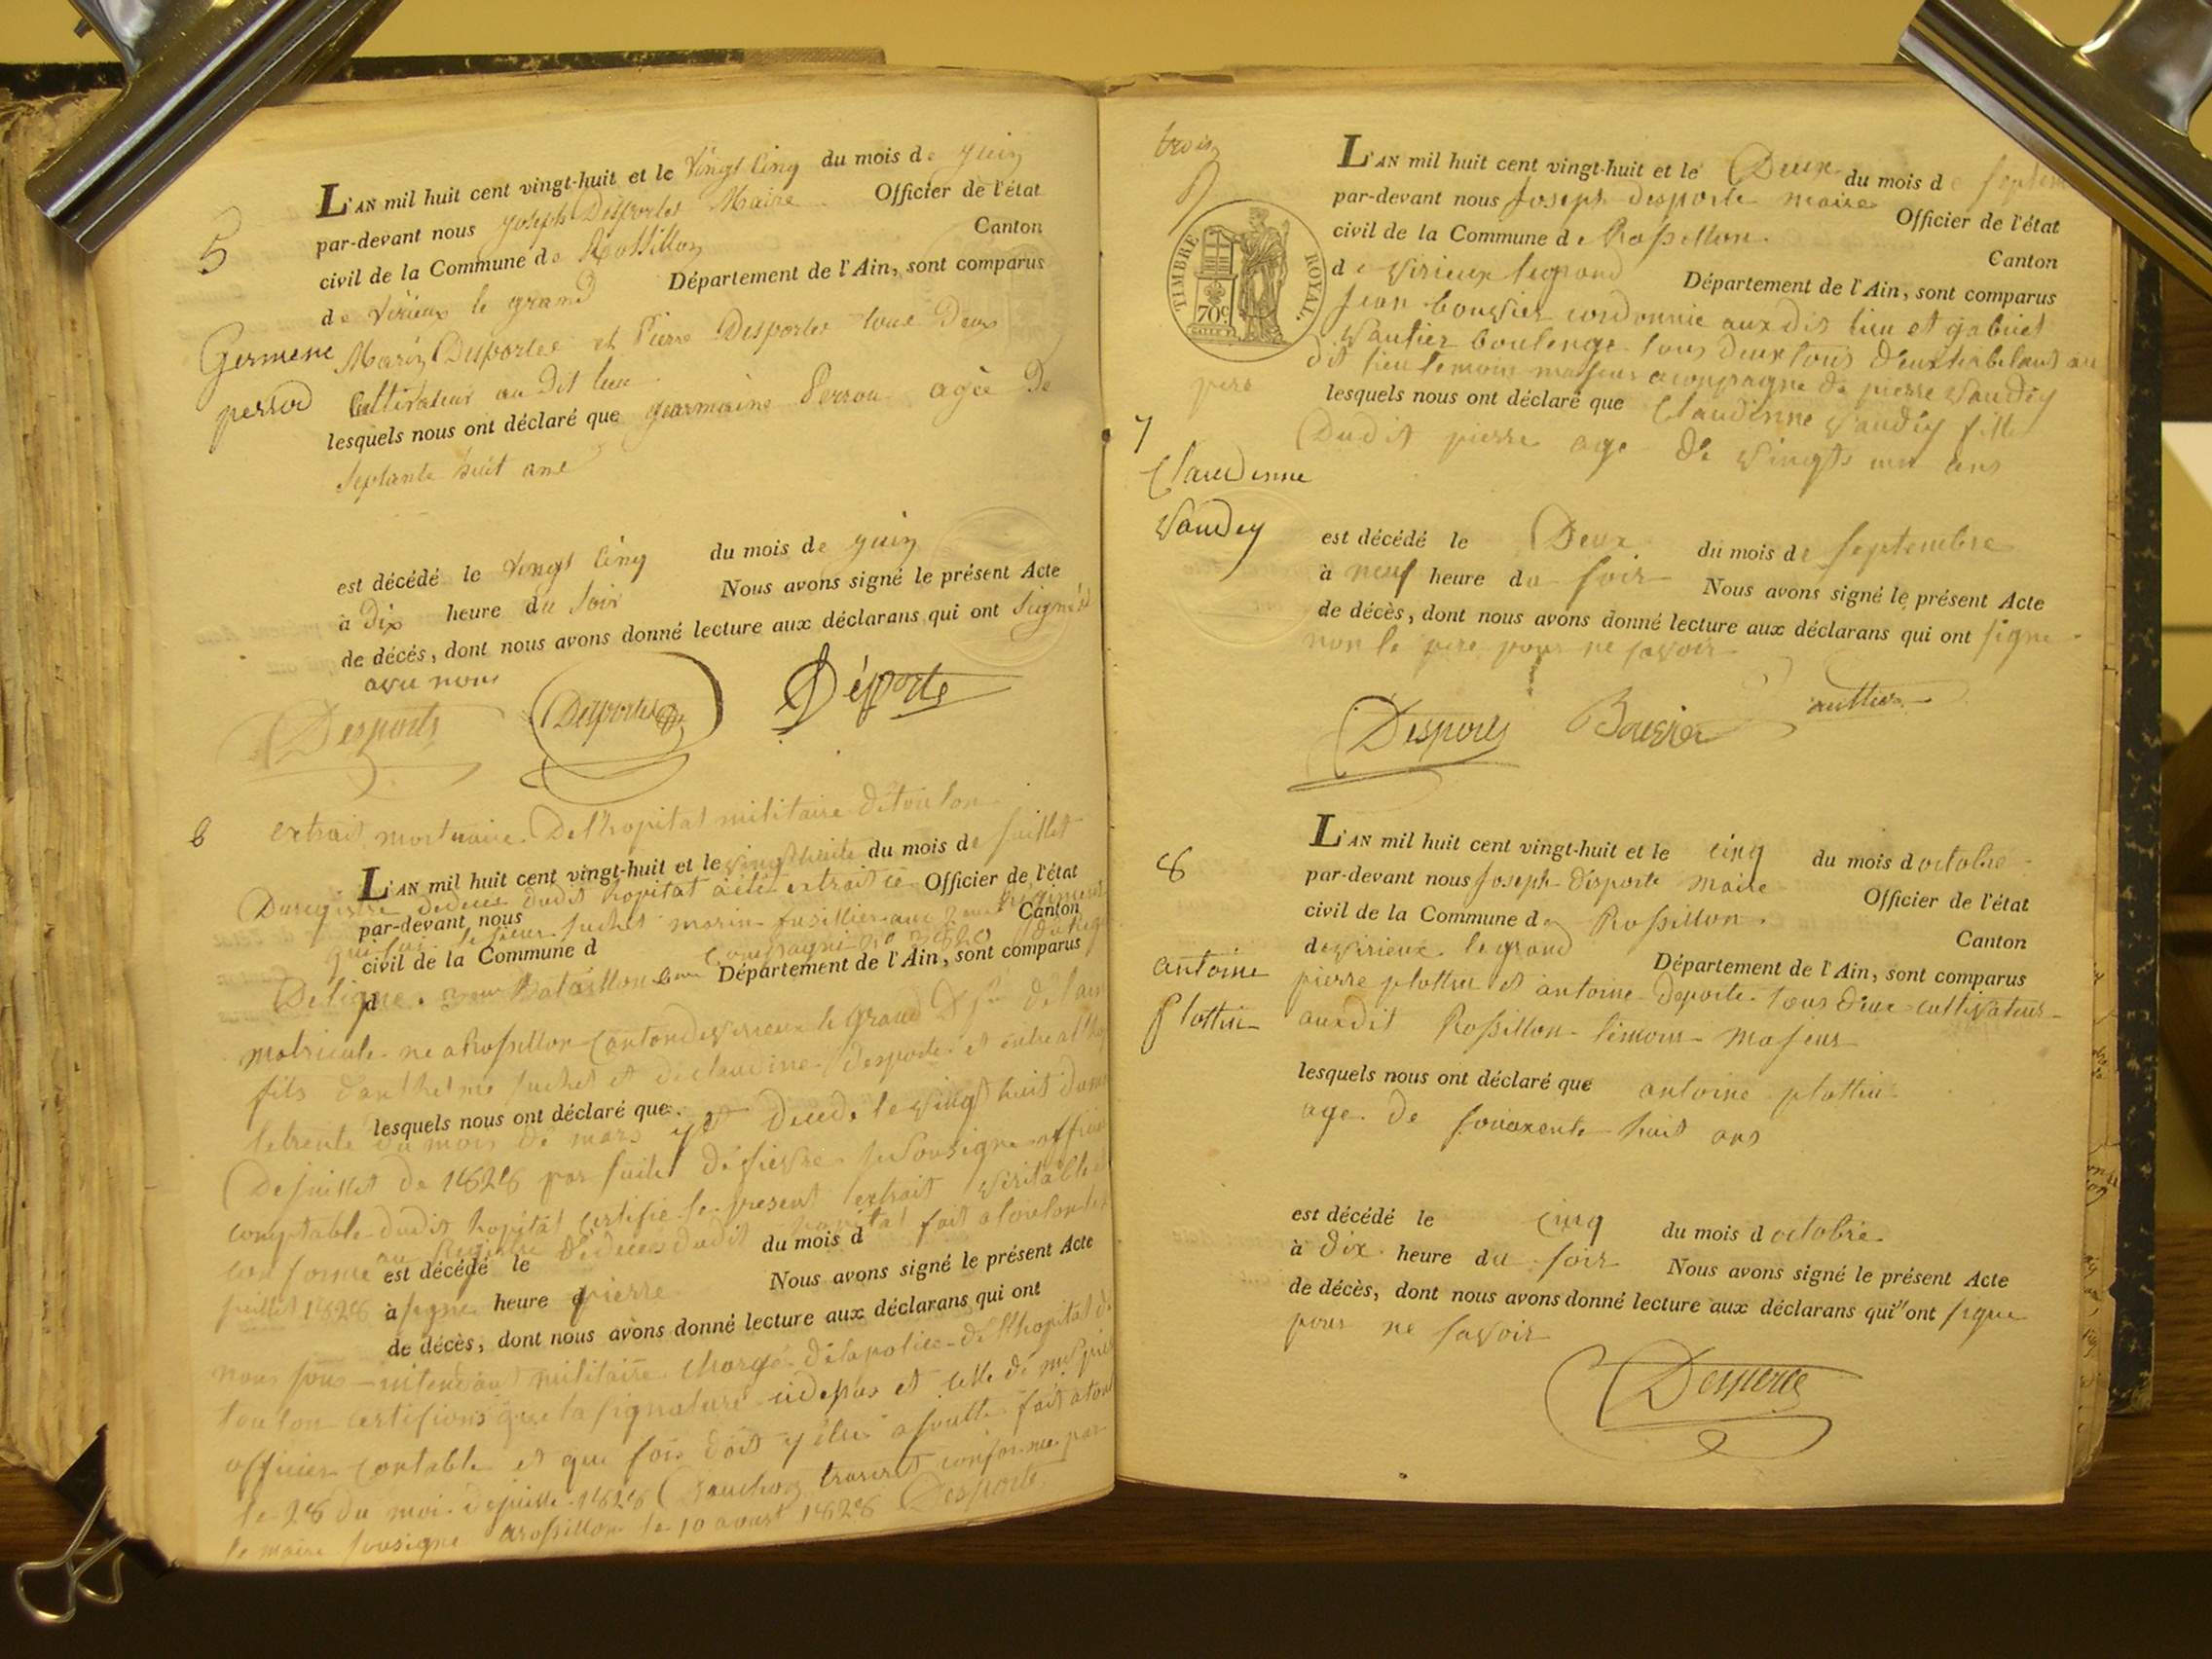 5
L'AN mil huit cent vingt-huit et le vingt cinq du mois de juin
par-devant nous joseph Desportes Maire Officier de l'état
civil de la Commune de Rossillon Canton
de virieux le grand Département de l'Ain, sont comparus
Germene Marin Desportes et Pierre Desportes tous Deux
perrod Cultivateur au Dit lieu
lesquels nous ont déclaré que germaine Perrou agée De
Septante huit ans
est décédé le vingt cinq du mois de juin
à Dix heure du soir Nous avons signé le présent Acte
de décés, dont nous avons donné lecture aux déclarans qui ont signés
avec nous
Desportes Desportes Désporte
6 extrait mortuaire De l'hopital militaire de toulon
L'AN mil huit cent vingt-huit et le vingt huit du mois de juillet
Du registre dedeces dudit hopital a été extrait ce Officier de l'état
par-devant nous
qui suit le sieur suchet marin fusillier au Canton
civil de la Commune d Compagnie
De ligne Batallion Département de l'Ain, sont comparus
d
matricule ne a Rossillon Canton de virieux le grand De lain
fils d'anthelme suchet et de claudine Desporte et entre a
lesquels nous ont déclaré que
le trente du mois de mars et Decede le vingt huit
De juillet de 1828 par suite de fievre soussigne
comptable dudit hopital certifie le present extrait veritable
conforme au Registre de deces dudit hopital fait a toulon
est décédé le du mois d
juillet 1828 à signe heure d pierre Nous avons signé le présent Acte
de décès, dont nous avons donné lecture aux déclarans qui ont
nous sous-intendant militaire chargé de la police de l'hopital de
toulon certifions que la signature cidessus et celle de
officier contable et que foi doit y etre ajoutte fait a
le 28 du moi de juillet 1828 transcrit conforme par
le maire sousigne a rossillon le 10 aoust 1828 Desporte
trois
TIMBRE ROYAL.
70c.
L'AN mil huit cent vingt-huit et le Deux du mois de
par-devant nous Joseph desporte maire Officier de l'état
civil de la Commune de Rossillon. Canton
de virieux legrand Département de l'Ain, sont comparus
Jean bouvier cordonnie aux dis lieu et gabriel
vautier boulenge tous deux
dit lieu temoin majeur acompagne de pierre vaudey
pere
lesquels nous ont déclaré que Claudinne vaudey fille
7 Dudit pierre age de vingts un ans
Claudinne
vaudey
est décédé le Deux du mois de septembre
à neuf heure du soir Nous avons signé le présent Acte
de décès, dont nous avons donné lecture aux déclarans qui ont signe
non le pere pour ne savoir
Desportes Bouvier autier
8
L'AN mil huit cent vingt-huit et le cinq du mois d octobre
par-devant nous Joseph desporte maire Officier de l'état
civil de la Commune de Rossillon. Canton
de virieux le grand Département de l'Ain, sont comparus
antoine pierre plottin et antoine deporte tous deux cultivateur
Plottin auxdit Rossillon temoin majeur
lesquels nous ont déclaré que antoine plottin
age de soixante huit ans
est décédé le cinq du mois d octobre
à dix heure du soir Nous avons signé le présent Acte
de décès, dont nous avons donné lecture aux déclarans qui ont signe
pour ne savoir
Desporte